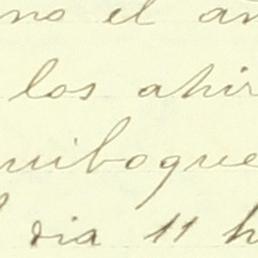 no el an
los ahir
uiboque
dia 11 h